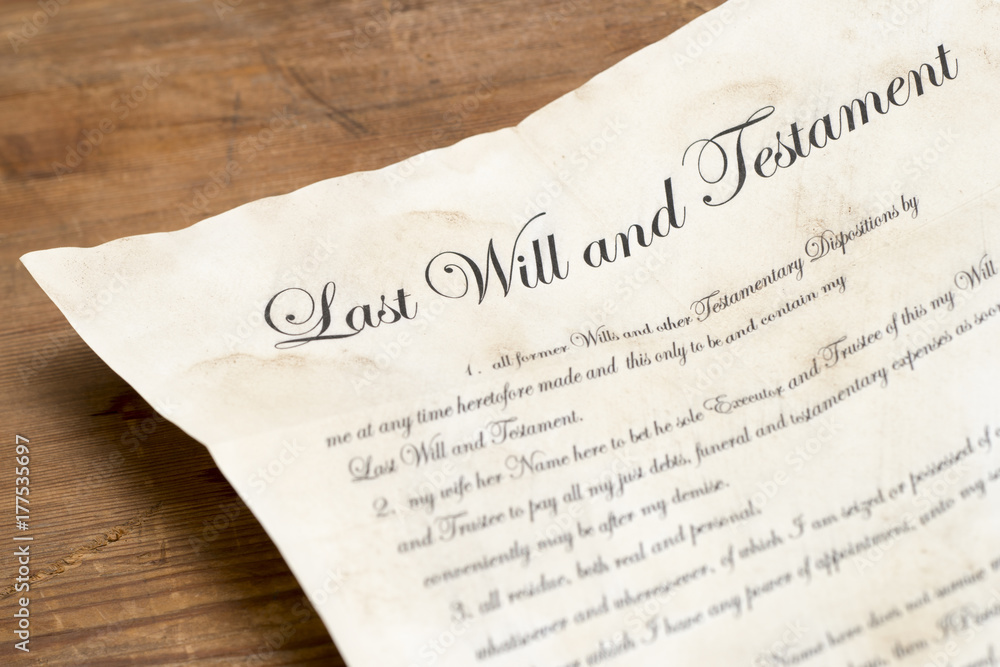 Last Will and Testament
1. all former Wills and other Testamentary Dispositions by
me at any time heretofore made and this only to be and contain my
Last Will and Testament.
2. my wife her Name here to bet he sole Executor and Trustee of this my Will
and Trustee to pay all my just debts, funeral and testamentary expenses as soon
conveniently may be after my demise.
3. all residue, both real and personal,
whatsoever and wheresoever, of which I am seized or possessed of
over which I have any power of appointment, unto my
Name here does not
Adobe Stock | #177535697